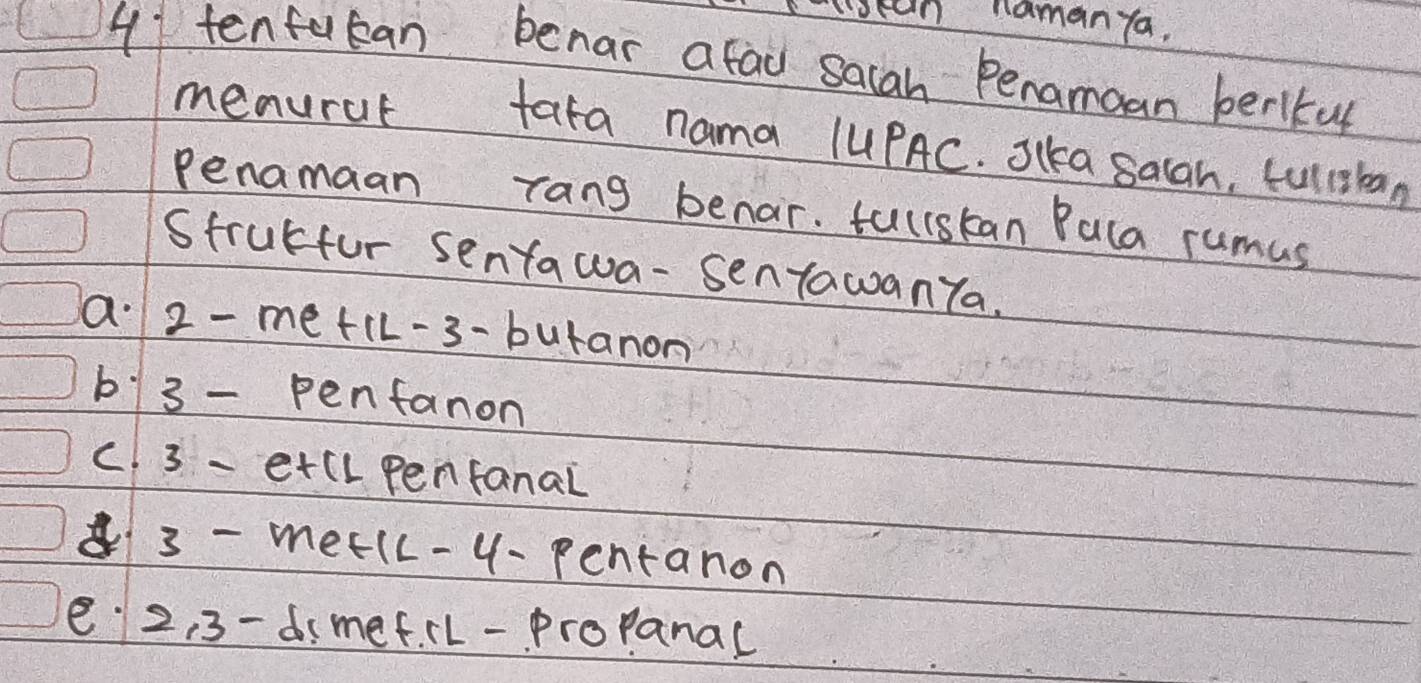 namanya.
4. tentukan benar atau salah Penamaan berikut
menurut tata nama IUPAC. Jika salah, tuliskan
Penamaan yang benar. tuliskan Pula rumus
Struktur senyawa-senyawanya.
a. 2-metil-3-butanon
b. 3- Pentanon
c. 3-etil pentanal
d. 3-metil-4-Pentanon
e. 2,3-dimetil-Propanal